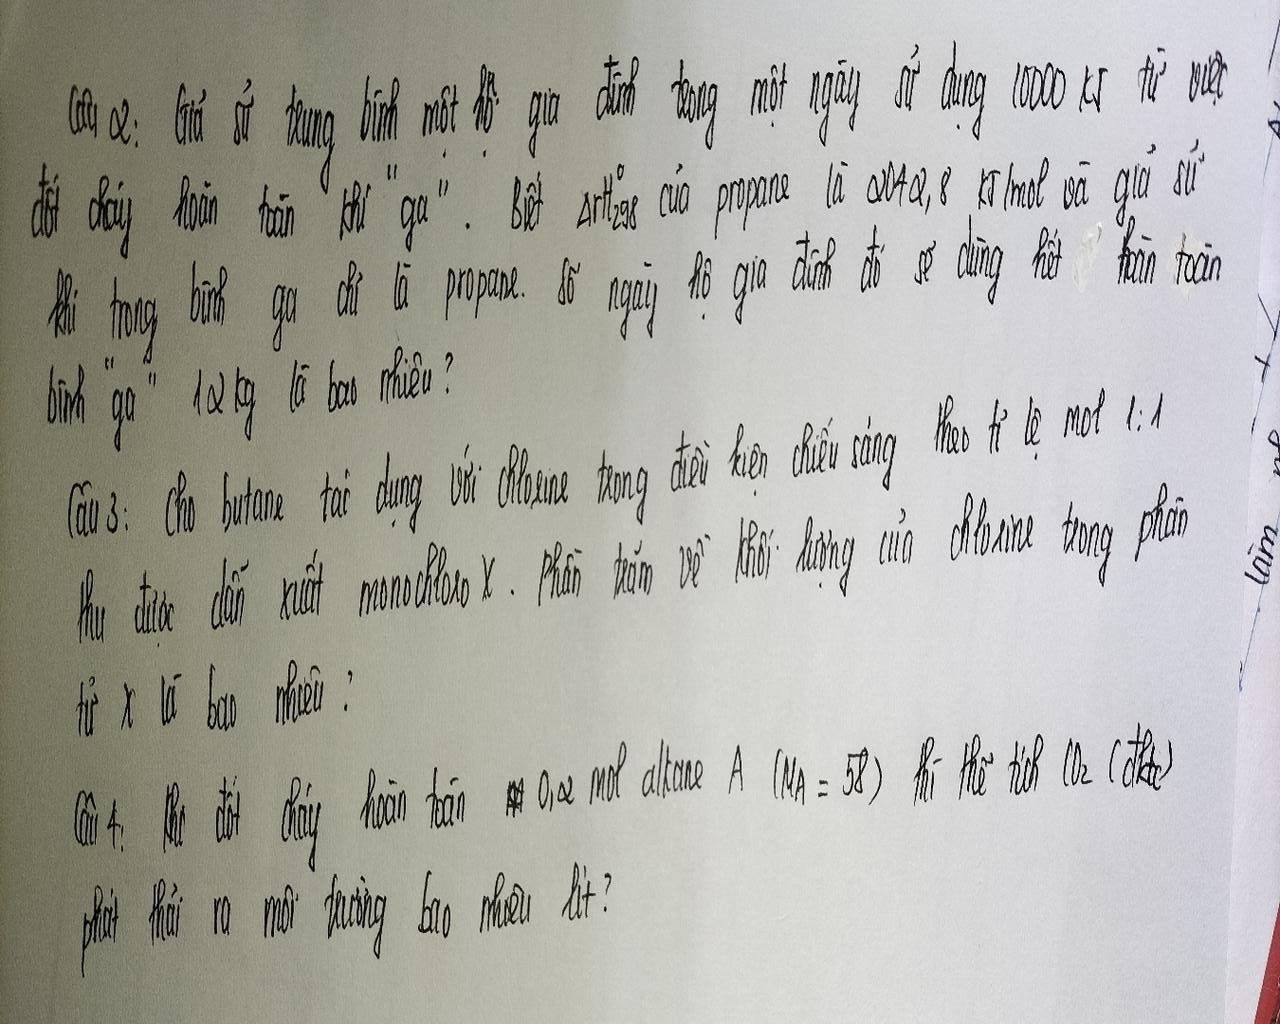 Câu 2: Giả sử trung bình một hộ gia đình trong một ngày sử dụng 10000 KJ từ việc
đốt cháy hoàn toàn khí "ga". Biết ΔrH°298 của propane là 2042,8 KJ/mol và giả sử
khí trong bình ga chỉ là propane. Số ngày hộ gia đình đó sẽ dùng hết hoàn toàn
bình "ga" 12 kg là bao nhiêu?
Câu 3: Cho butane tác dụng với chlorine trong điều kiện chiếu sáng theo tỉ lệ mol 1:1
thu được dẫn xuất monochloro X. Phần trăm về khối lượng của chlorine trong phân
tử X là bao nhiêu?
Câu 4: Khi đốt cháy hoàn toàn 0,2 mol alkane A (MA = 58) thì thể tích CO2 (đktc)
phát thải ra môi trường bao nhiêu lít?
làm